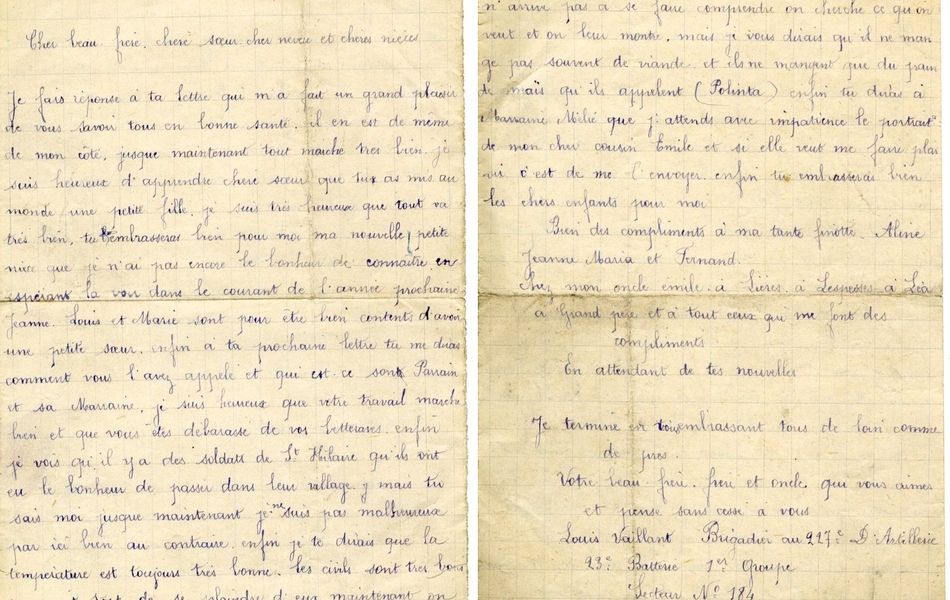 Cher beau frère, cheré sœur cher neveu et chères nièces
Je fais réponse à ta lettre qui m'a fait un grand plaisir
de vous savoir tous en bonne santé. il en est de même
de mon côté, jusque maintenant tout marche très bien. je
suis heureux d'apprendre chère sœur que tu as mis au
monde une petite fille, je suis très heureux que tout va
très bien, tu embrasseras bien pour moi ma nouvelle petite
nièce que je n'ai pas encore le bonheur de connaître en
espérant la voir dans le courant de l'année prochaine
Jeanne. Louis et Marie sont pour être bien contents d'avoir
une petite sœur. enfin à ta prochaine lettre tu me diras
comment vous l'avez appelé et qui est-ce sont Parrain
et sa Marraine, je suis heureux que votre travail marche
bien et que vous êtes débarassé de vos betteraves enfin
je vois qu'il y a des soldats de St Hilaire qu'ils ont
eu le bonheur de passer dans leur village, mais tu
sais moi jusque maintenant je ne suis pas malheureux
par ici bien au contraire. enfin je te dirais que la
température est toujours très bonne. les civils sont très bons
de se plaindre d'eux maintenant on
n'arrive pas à se faire comprendre on cherche ce qu'on
veut et on leur montre. mais je vous dirais qu'il ne man
ge pas souvent de viande. et ils ne mangent que du pain
de maïs qu'ils appelent (Polinta) enfin tu diras à
Marraine Mélié que j'attends avec impatience le portrait
de mon cher cousin Emile et si elle veut me faire plai
sir c'est de me l'envoyer. enfin tu embrasseras bien
les chers enfants pour moi
Bien des compliments à ma tante finotte. Aline
Jeanne Maria et Fernand.
Chez mon oncle émile. à Lières. à Lespesses. à Léa
à Grand père et à tout ceux qui me font des
compliments
En attendant de tes nouvelles
Je termine en vous embrassant tous de loin comme
de près.
Votre beau-frère. frère et oncle. qui vous aimes
et pense sans cesse à vous
Louis Vaillant Brigadier au 227e D'Artillerie
23e Batterie 1er Groupe
Secteur No 184